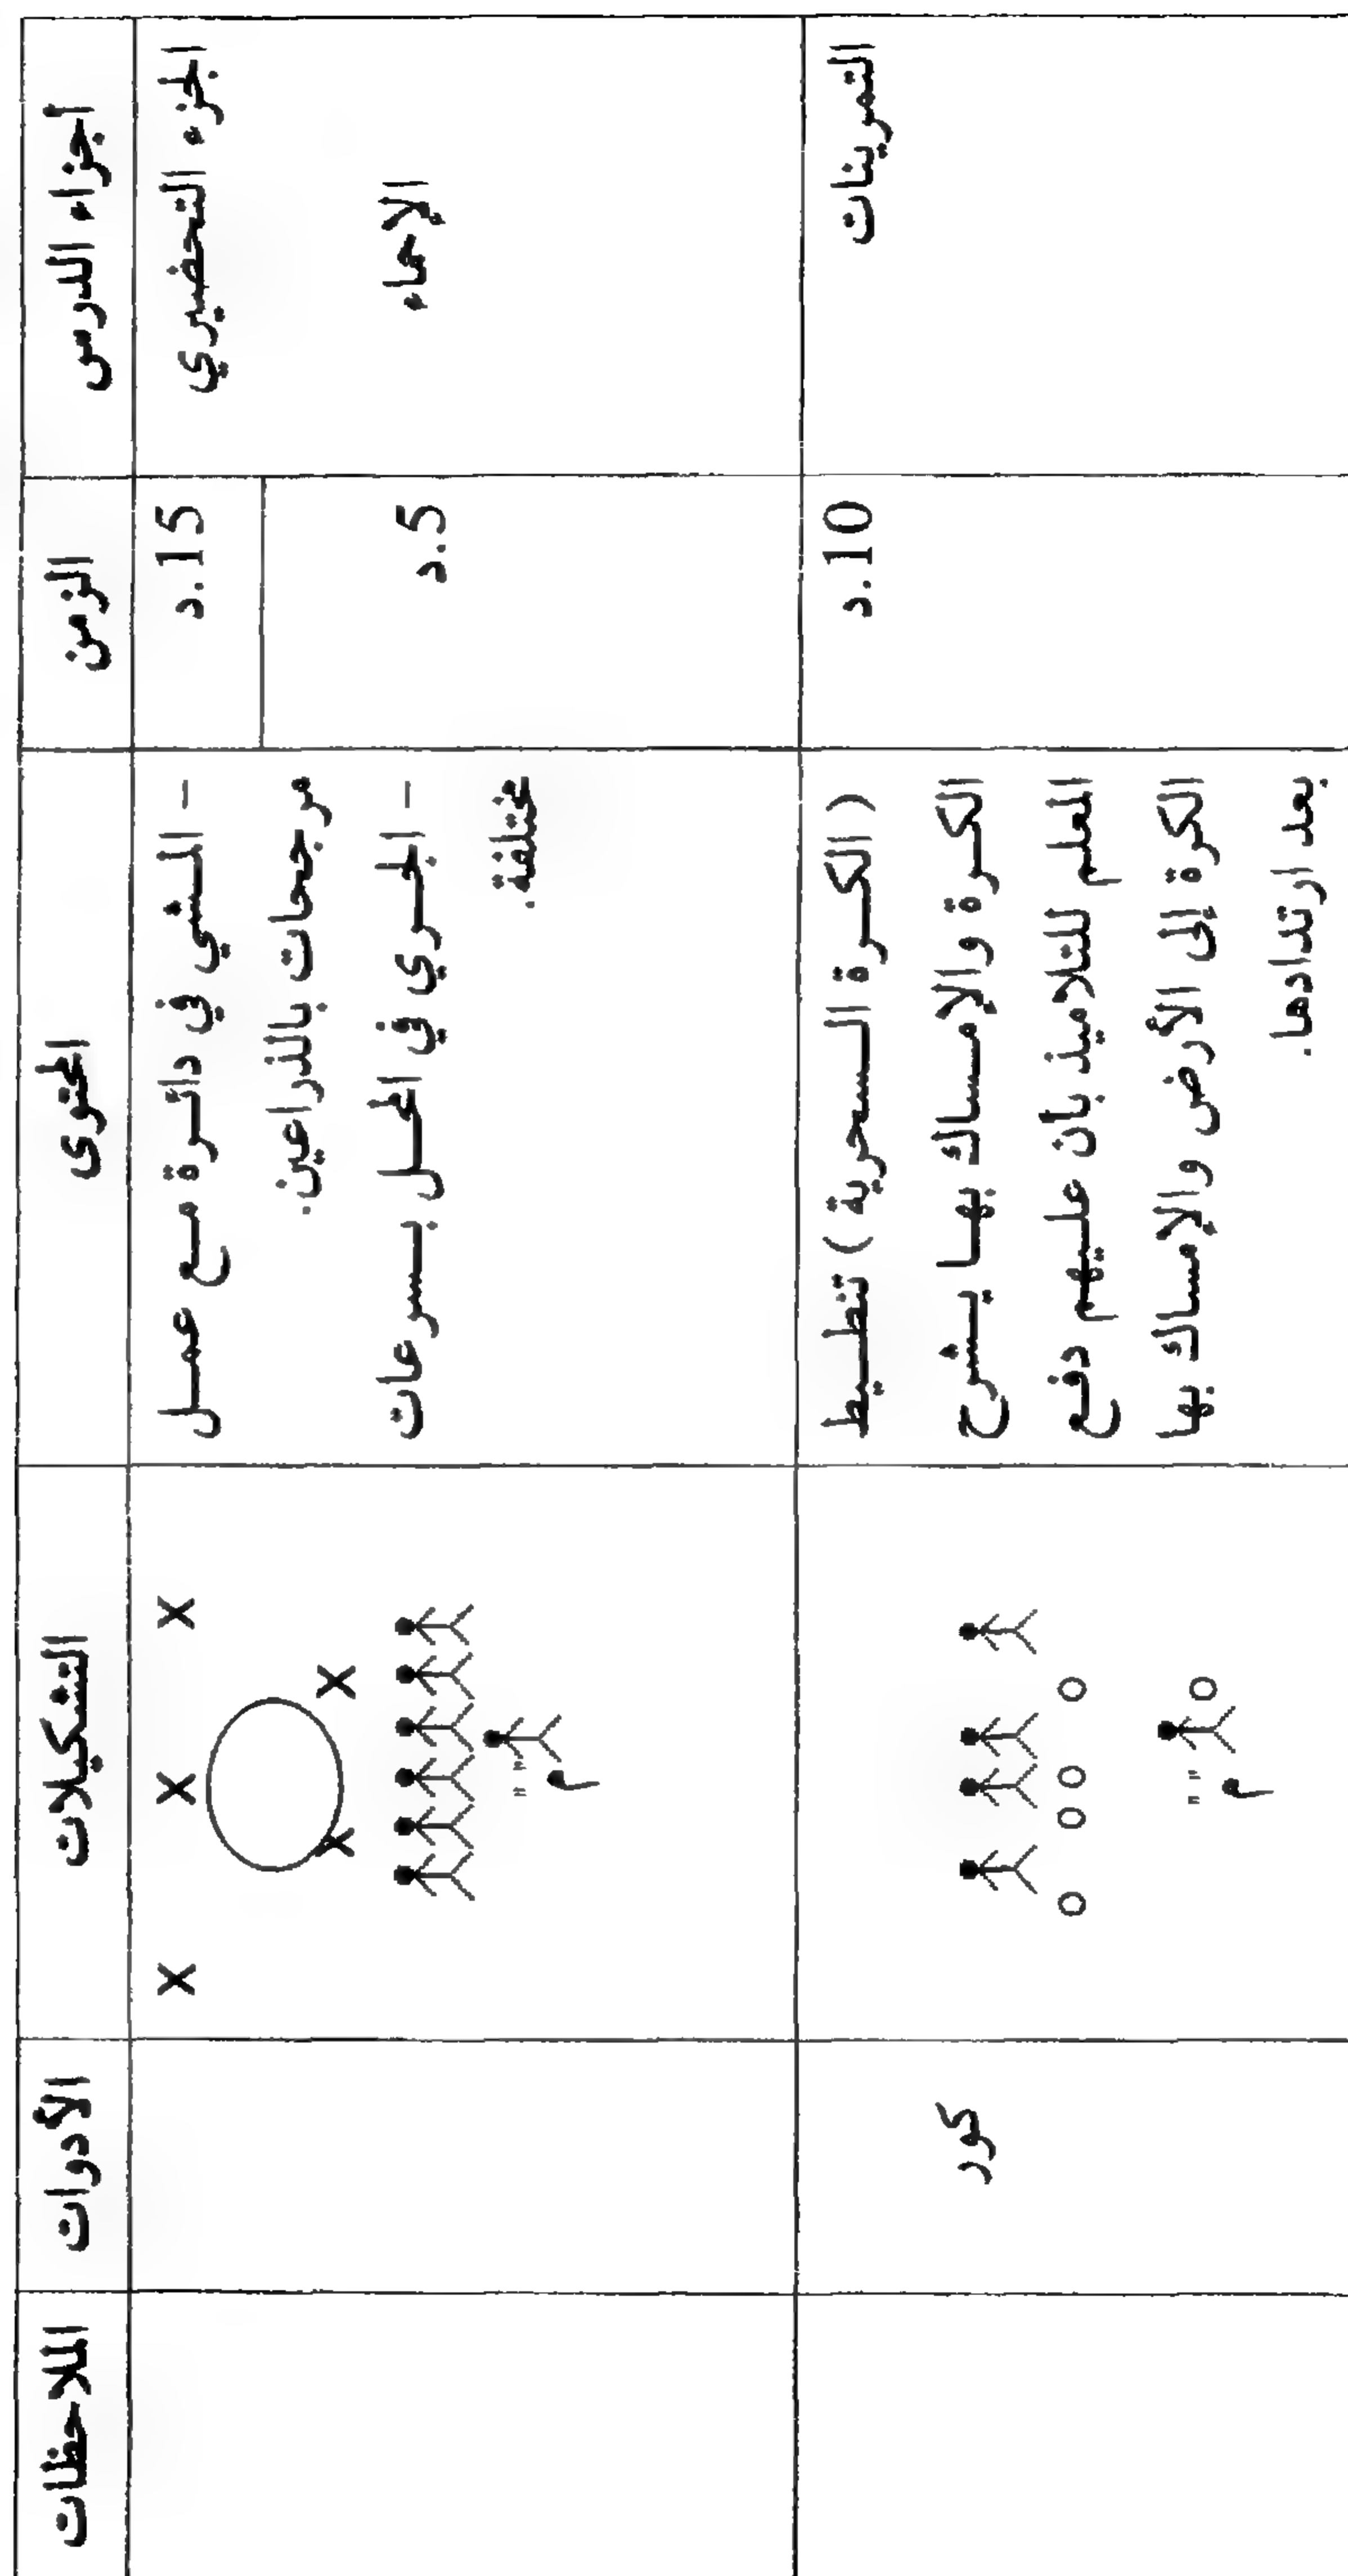 أجزاء الدرس
الزمن
المحتوى
التشكيلات
الأدوات
الملاحظات
الجزء التحضيري
15.د
- المشي في دائرة مع عمل
مرجحات بالذراعين.
X X X
X X
الإحماء
5.د
- الجري في المحل بسرعات
مختلفة.
" "
م
التمرينات
10.د
( الكرة السحرية ) تنطيط
الكرة والإمساك بها يشرح
المعلم للتلاميذ بأن عليهم دفع
الكرة إلى الأرض والإمساك بها
بعد ارتدادها.
" "
م
كور